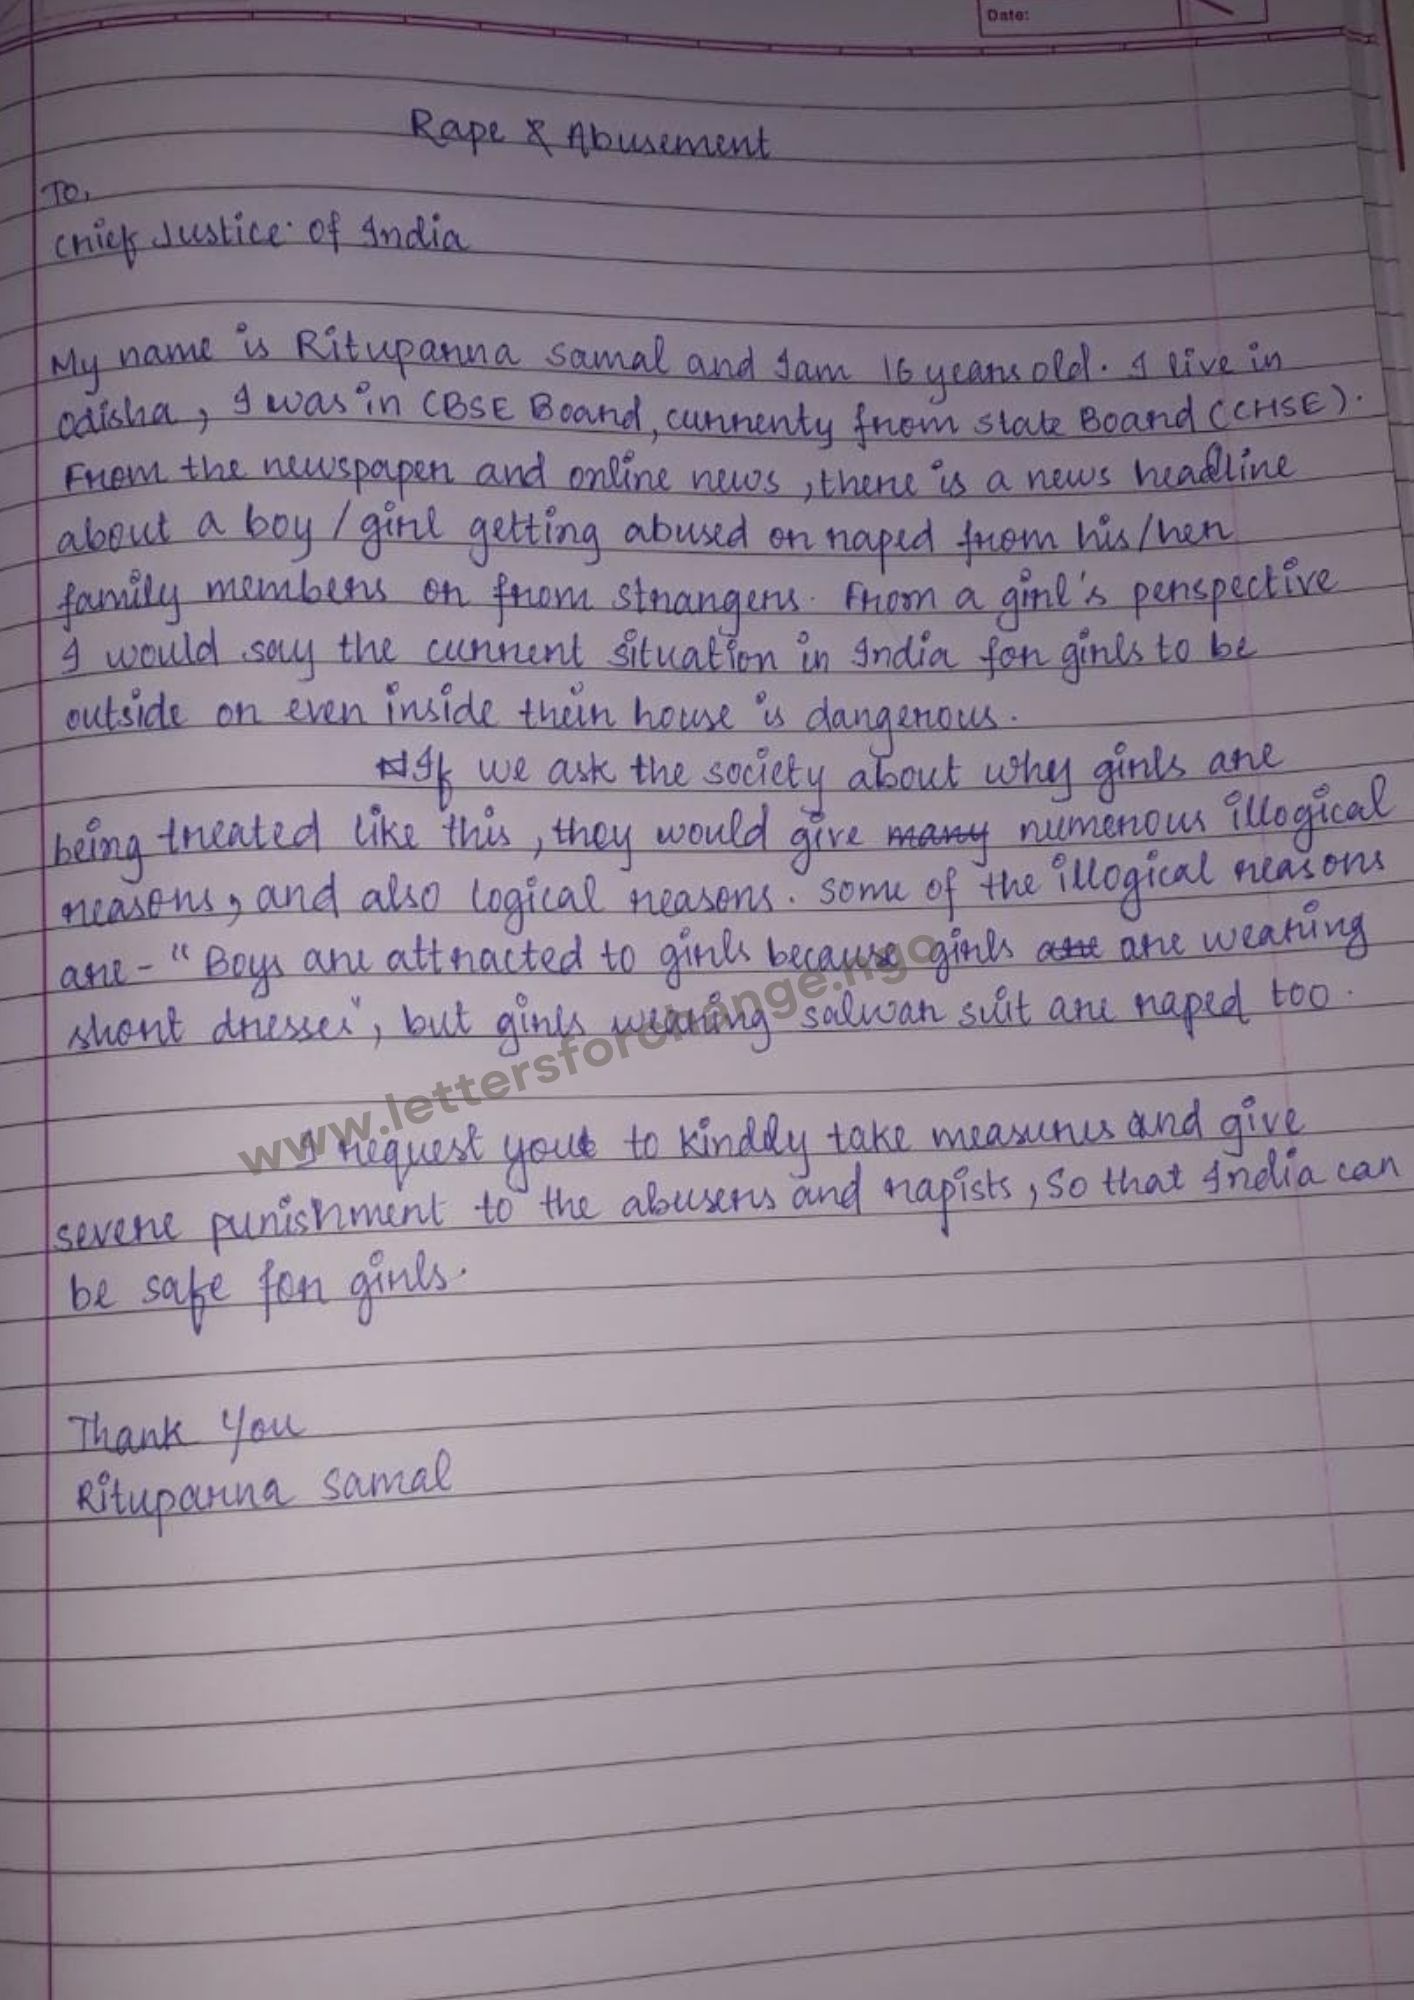 Date:
Rape & Abusement
To,
Chief Justice of India
My name is Rituparna Samal and I am 16 years old. I live in
Odisha, I was in CBSE Board, currenty from State Board (CHSE).
From the newspaper and online news, there is a news headline
about a boy/girl getting abused or raped from his/her
family members or from strangers. From a girl's perspective
I would say the current situation in India for girls to be
outside or even inside their house is dangerous.
If we ask the society about why girls are
being treated like this, they would give many numerous illogical
reasons, and also logical reasons. Some of the illogical reasons
are - "Boys are attracted to girls because girls are are wearing
short dresses", but girls wearing salwar suit are raped too.
www.lettersforchange.ngo
I request you to kinddly take measures and give
severe punishment to the abusers and rapists, so that India can
be safe for girls.
Thank You
Rituparna Samal